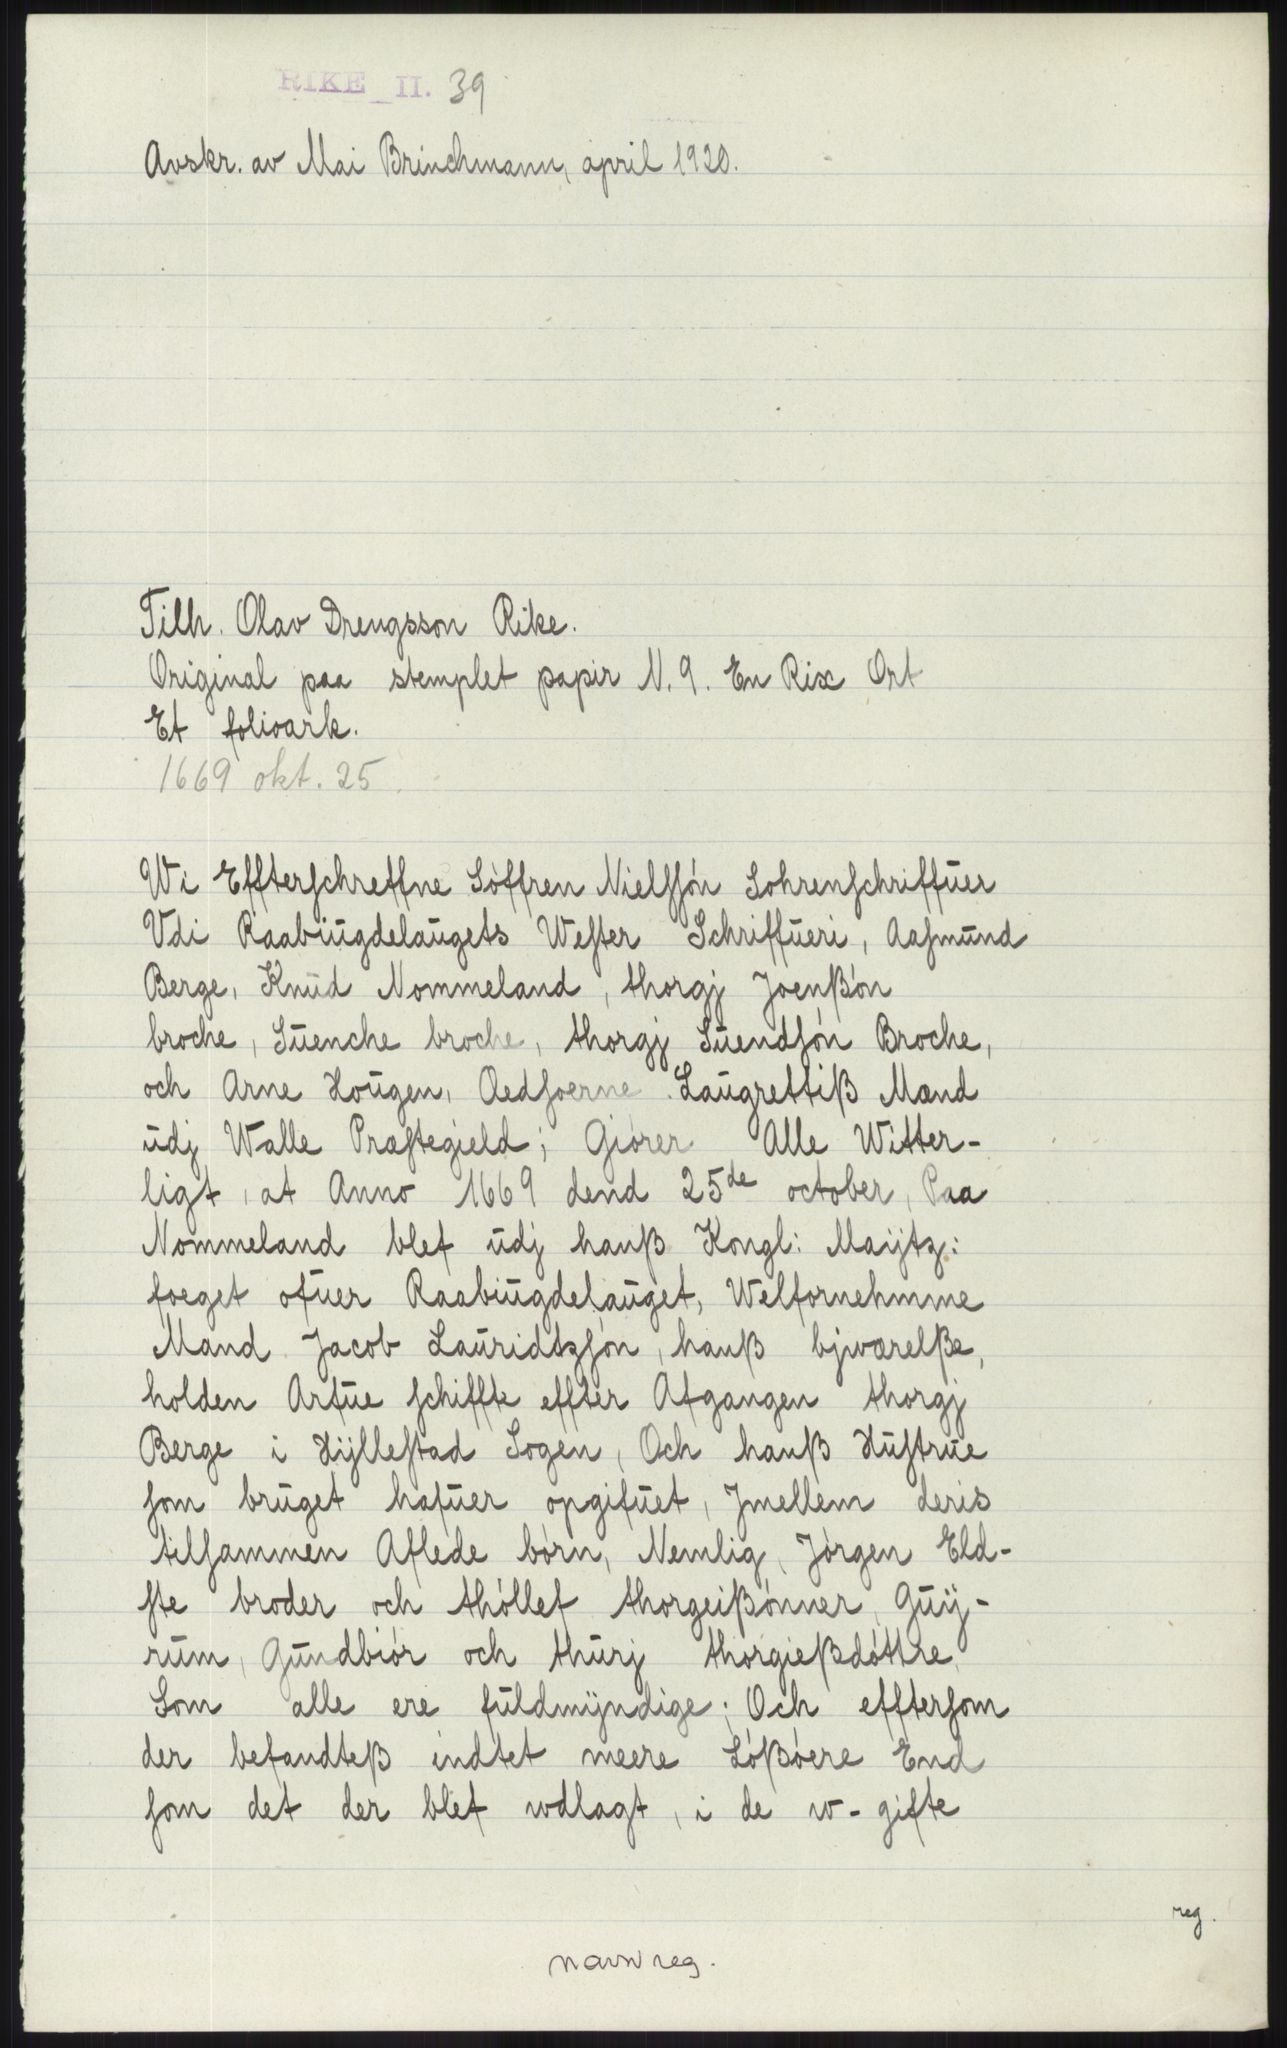 RIKE II. 39
Avskr. av Mai Brinchmann, april 1920.
Tilh. Olav Drengsson Rike.
Original paa stemplet papir N. 9. En Rix Ort
Et folioark.
1669 okt. 25.
Wi Effterſchreffne Söffren Nielſſón Sohrenſchriffŭer
Vdi Raabiŭgdelaŭgets Weſter Schriffŭeri, Aaſmŭnd
Berge, Knŭd Nommeland, thorgj Joenßón
broche, Sŭenche broche, thorgj Sŭendſón Broche,
och Arne Hoŭgen, Aedſoerne Laŭgrettiß Mænd
ŭdj Walle Præſtegield; Giórer Alle Witter-
ligt, at Anno 1669 dend 25de october, Paa
Nommeland blef ŭdj hanß Kongl: Maÿtz:
foeget ofŭer Raabiŭgdelaŭget, Welfornehmme
Mand Jacob Laŭridtzſón, hanß bjwærelße,
holden Arfŭe ſchiffte effter Afgangen thorgj
Berge i Hÿlleſtad Sogen, Och hanß Hŭſtrŭe
ſom brŭget hafŭer opgifŭet, Jmellem deris
tilſammen Aflede børn, Nemlig, Jórgen Eld-
ſte broder och thóllef thorgeißónner, Gŭÿ-
rŭm, Gŭndbiór och thŭrj thorgießdóttre,
Som alle ere fŭldmÿndige; Och effterſom
der befandteß indtet meere Lóßóere End
ſom det der blef wdlagt, i de w-gifte
reg.
navnreg.